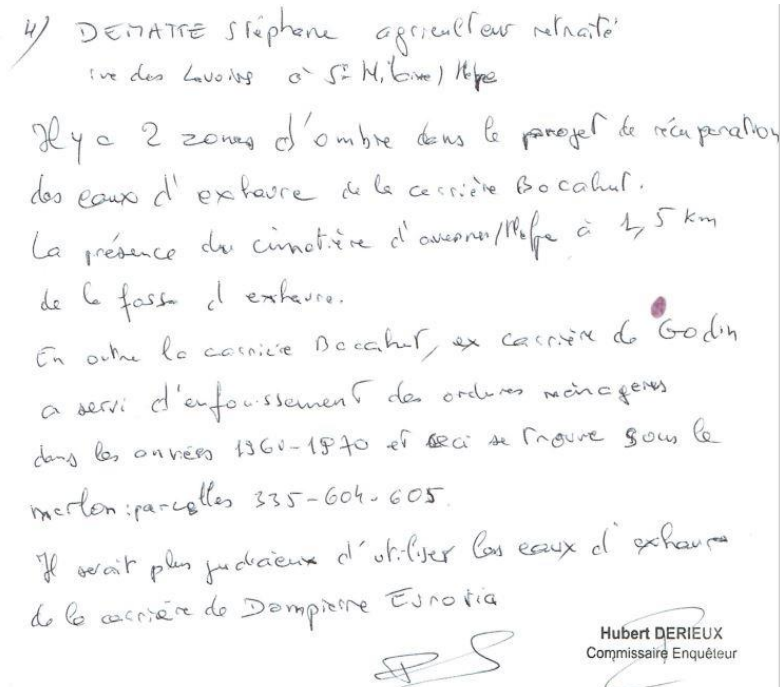 4) DEMATTE Stéphane agriculteur retraité
rue des Lavoirs à St Hilaire / Helpe
Il y a 2 zones d'ombre dans le projet de récupération
des eaux d'exhaure de la carrière Bocahut.
La présence du cimetière d'avesnes/Helpe à 1,5 km
de la fosse d'exhaure.
En outre la carrière Bocahut, ex carrière de Godin
a servi d'enfouissement des ordures ménagères
dans les années 1960-1970 et ceci se trouve sous le
merlon : parcelles 335-604-605.
Il serait plus judicieux d'utiliser les eaux d'exhaure
de la carrière de Dompierre Eurovia
Hubert DERIEUX
Commissaire Enquêteur